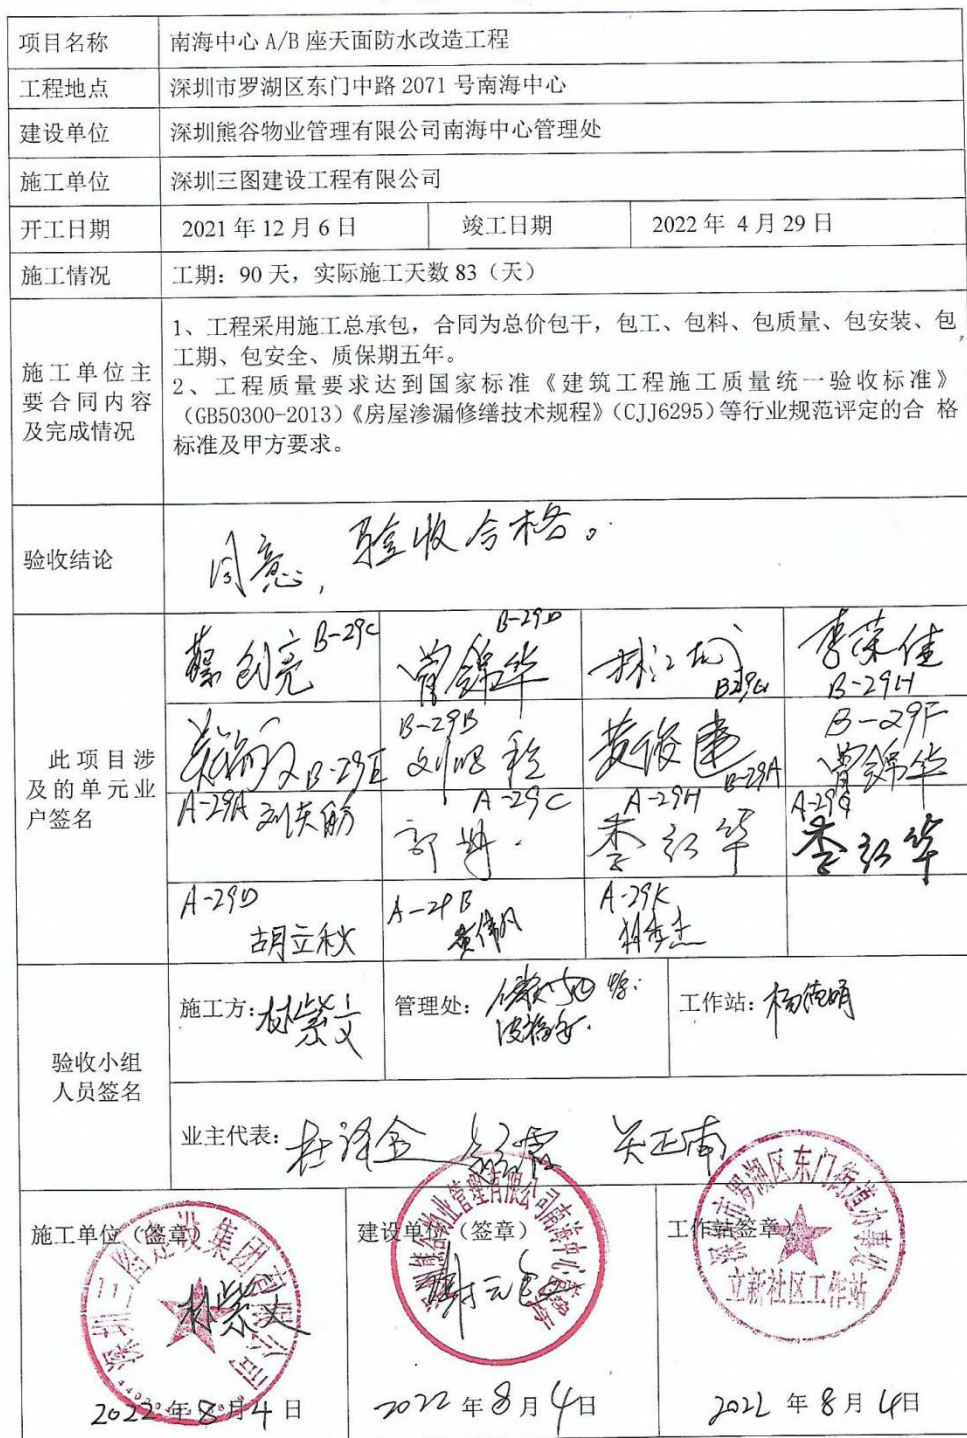 项目名称 南海中心 A/B 座天面防水改造工程
工程地点 深圳市罗湖区东门中路 2071 号南海中心
建设单位 深圳熊谷物业管理有限公司南海中心管理处
施工单位 深圳三图建设工程有限公司
开工日期 2021 年 12 月 6 日 竣工日期 2022 年 4 月 29 日
施工情况 工期：90 天，实际施工天数 83（天）
施工单位主要合同内容及完成情况
1、工程采用施工总承包，合同为总价包干，包工、包料、包质量、包安装、包
工期、包安全、质保期五年。
2、工程质量要求达到国家标准《建筑工程施工质量统一验收标准》
（GB50300-2013）《房屋渗漏修缮技术规程》（CJJ6295）等行业规范评定的合 格
标准及甲方要求。
验收结论 同意，验收合格。
此项目涉及的单元业户签名
蔡创亮 B-29C 曾锦华 B-29D B29G 李荣佳 B-29H
B-29E B-29B 黄俊建 B-29A B-29F 曾锦华
A-29A A-29C 郭 A-29H 李红华 A-29G 李红华
A-29D 胡立秋 A-29B 黄伟凡 A-29K
验收小组
人员签名
施工方：林紫文 管理处： 工作站：杨德明
业主代表：杜译金 关正南
施工单位（签章） 建设单位（签章） 工作站签章）
深圳三图建设集团有限公司
林紫文
深圳熊谷物业管理有限公司南海中心管理处
谢云
深圳市罗湖区东门街道办事处
立新社区工作站
2022 年 8 月 4 日 2022 年 8 月 4 日 2022 年 8 月 4 日